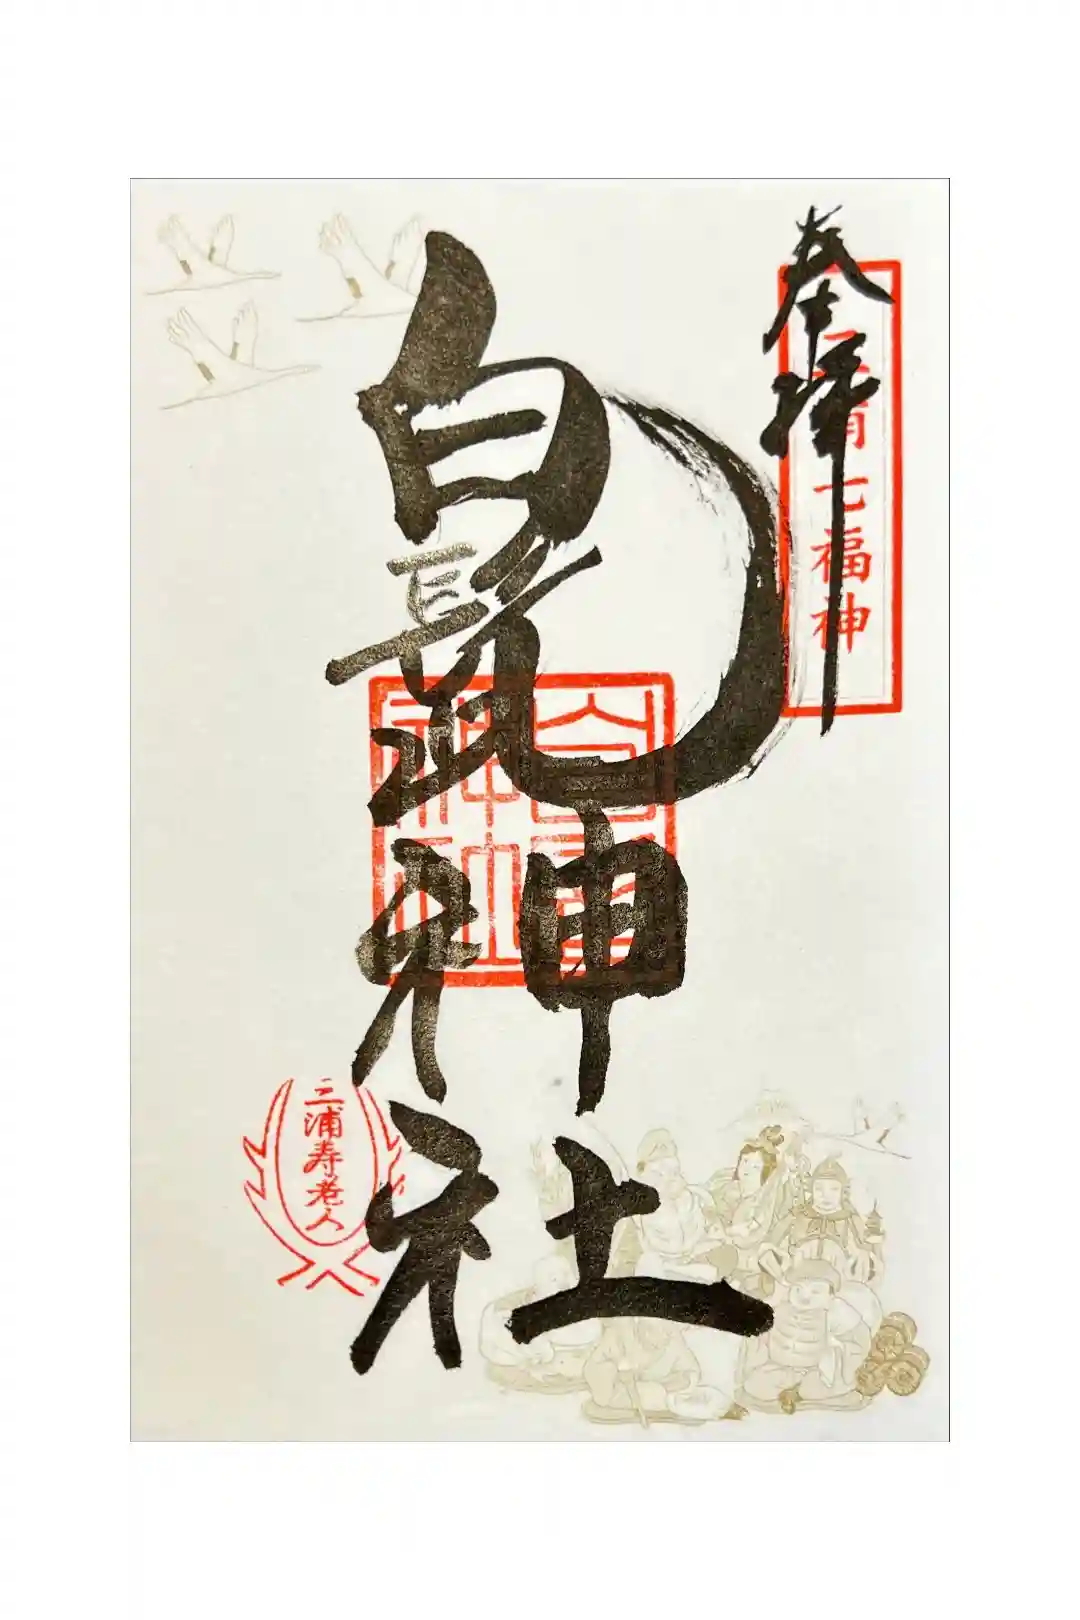 奉拝
三浦七福神
白髭神社
三浦寿老人